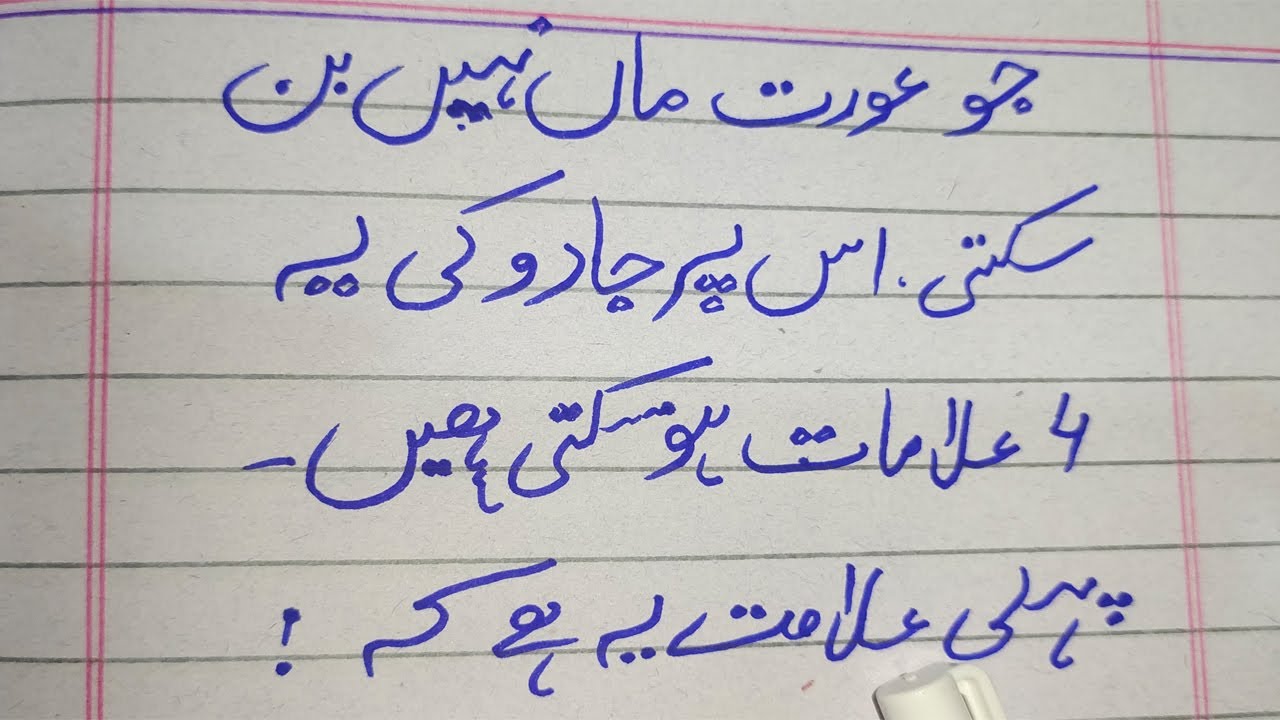 جو عورت ماں نہیں بن
سکتی. اس پر جادو کی یہ
4 علامات ہو سکتی ہیں۔
پہلی علامت یہ ہے کہ !